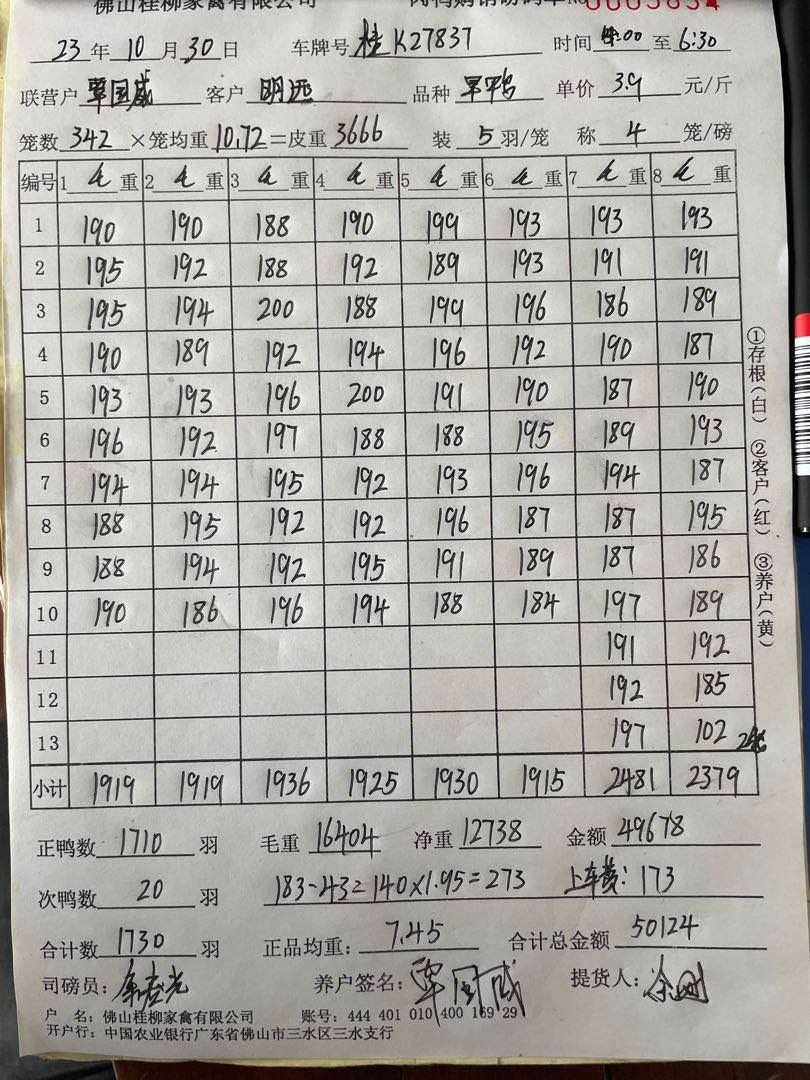 佛山桂柳家禽有限公司 肉鸭购销磅码单 No 0005834
23 年 10 月 30 日 车牌号 桂K27837 时间 4:00 至 6:30
联营户 覃国威 客户 明远 品种 旱鸭 单价 3.9 元/斤
笼数 342 ×笼均重 10.72 =皮重 3666 装 5 羽/笼 称 4 笼/磅
编号 1 毛 重 2 毛 重 3 毛 重 4 毛 重 5 毛 重 6 毛 重 7 毛 重 8 毛 重
1 190 190 188 190 199 193 193 193
2 195 192 188 192 189 193 191 191
3 195 194 200 188 199 196 186 189
4 190 189 192 194 196 192 190 187
5 193 193 196 200 191 190 187 190
6 196 192 197 188 188 195 189 193
7 194 194 195 192 193 196 194 187
8 188 195 192 192 196 187 187 195
9 188 194 192 195 191 189 187 186
10 190 186 196 194 188 184 197 189
11 191 192
12 192 185
13 197 102 2笼
小计 1919 1919 1936 1925 1930 1915 2481 2379
正鸭数 1710 羽 毛重 16404 净重 12738 金额 49678
次鸭数 20 羽 183-43=140×1.95=273 上车费: 173
合计数 1730 羽 正品均重: 7.45 合计总金额 50124
司磅员: 养户签名: 覃国威 提货人:
户 名: 佛山桂柳家禽有限公司 账号: 444 401 010 400 169 29
开户行: 中国农业银行广东省佛山市三水区三水支行
①存根(白) ②客户(红) ③养户(黄)